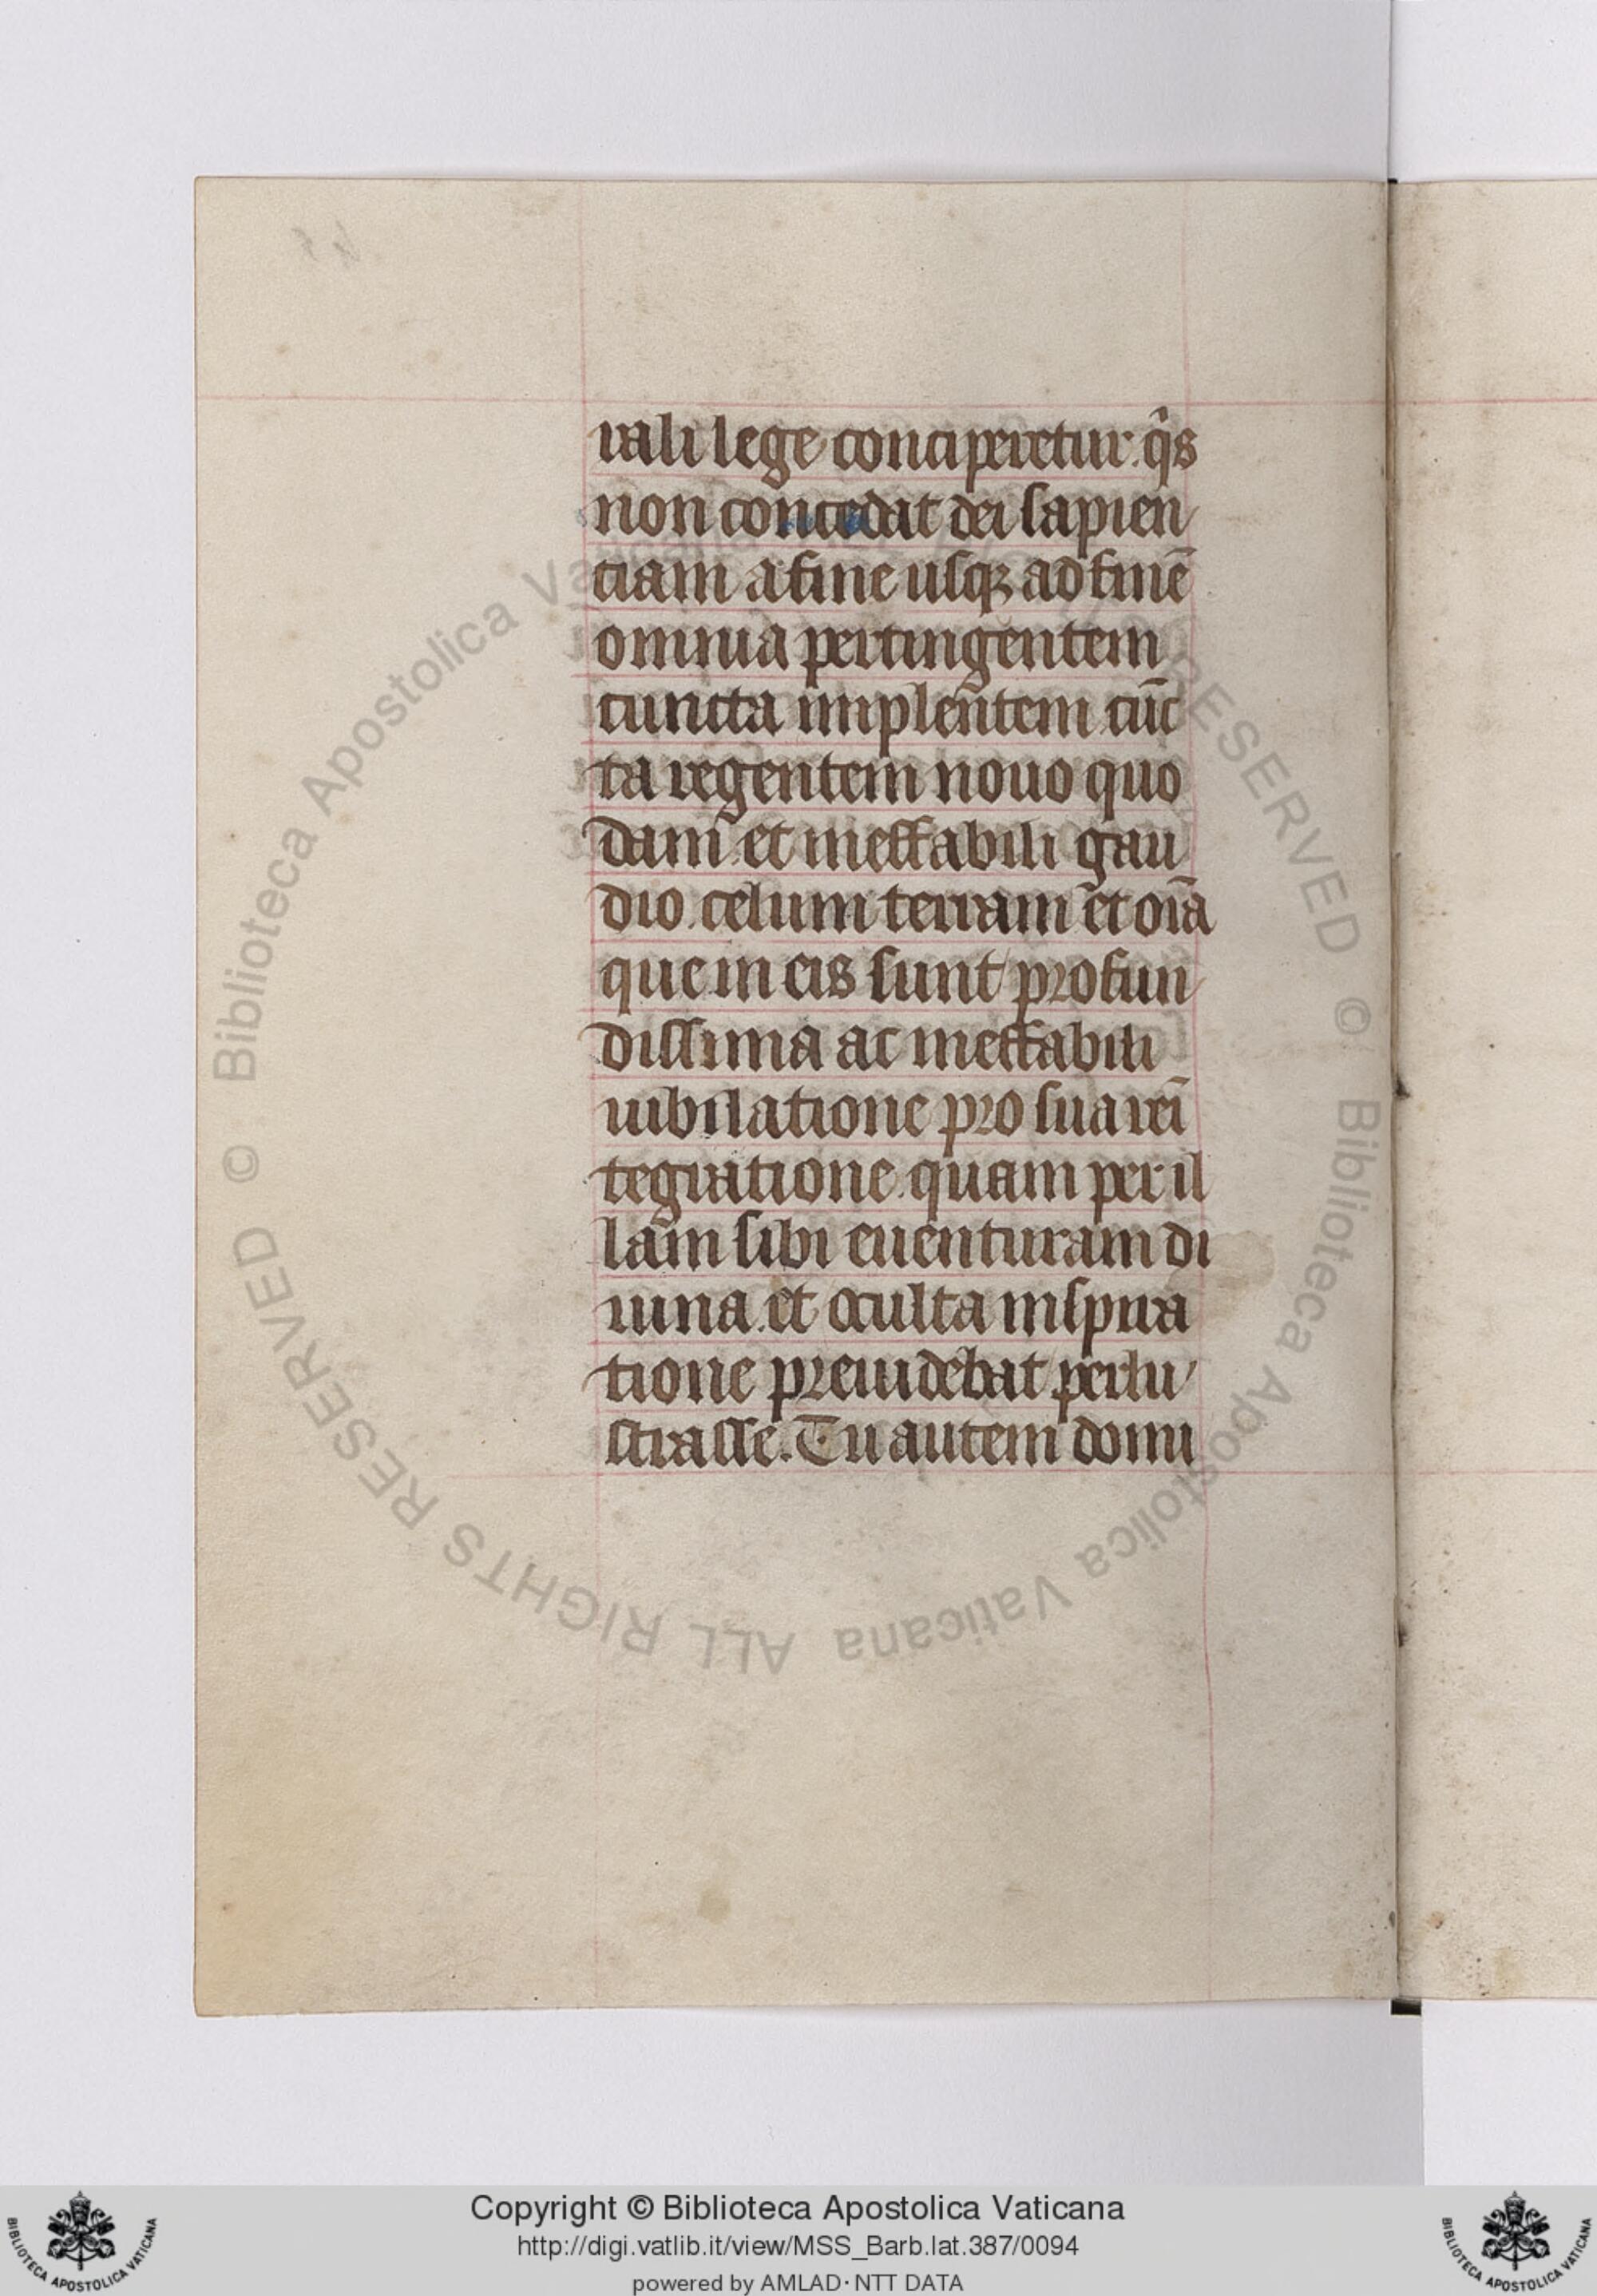 rali lege conciperetur. q̄s
non concedat dei sapien
tiam a fine usq; ad finē
omnia pertingentem
cuncta implentem cūc
ta regentem nouo quo
dam et ineffabili gau
dio. celum terram et oīa
que in eis sunt profun
dissima ac ineffabili
iubilatione pro sua rei
tegratione. quam per il
lam sibi euenturam di
uina et oculta inspira
tione preuidebat perlu
strasse. Tu autem domi
© Biblioteca Apostolica Vaticana ALL RIGHTS RESERVED
© Biblioteca Apostolica Vaticana ALL RIGHTS RESERVED
Copyright © Biblioteca Apostolica Vaticana
http://digi.vatlib.it/view/MSS_Barb.lat.387/0094
powered by AMLAD·NTT DATA
BIBLIOTECA APOSTOLICA VATICANA
BIBLIOTECA APOSTOLICA VATICANA